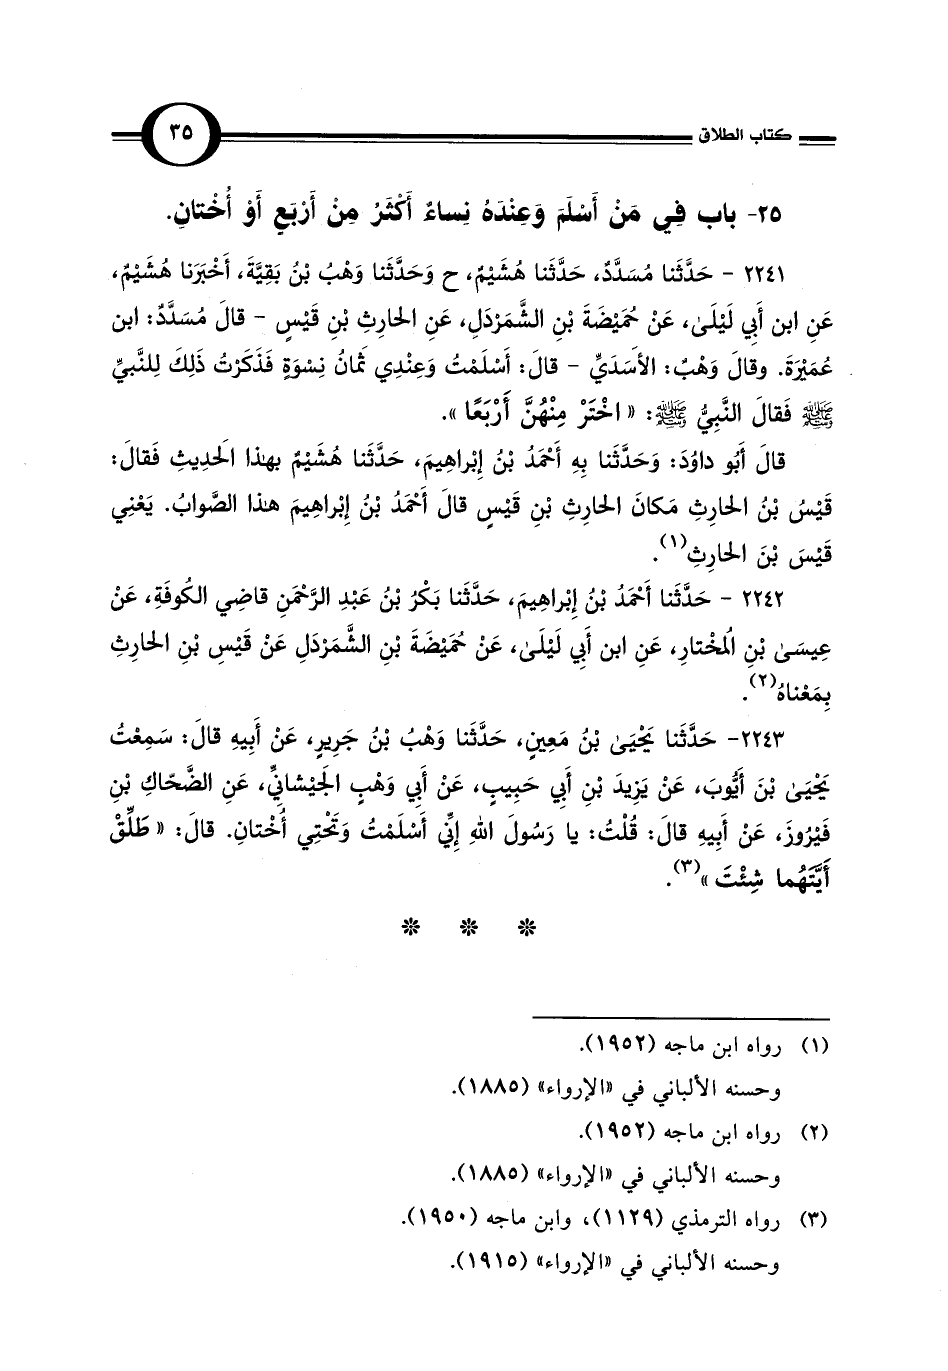 كتاب الطلاق ٣٥
٢٥- باب فِي مَنْ أَسْلَمَ وَعِنْدَهُ نِساءٌ أَكْثَرُ مِنْ أَرْبَعٍ أَوْ أُخْتانِ.
٢٢٤١ - حَدَّثَنا مُسَدَّدٌ، حَدَّثَنا هُشَيْمٌ، ح وَحَدَّثَنا وَهْبُ بْنُ بَقِيَّةَ، أَخْبَرَنا هُشَيْمٌ،
عَنِ ابن أَبِي لَيْلَىٰ، عَنْ حُمَيْضَةَ بْنِ الشَّمَرْدَلِ، عَنِ الحَارِثِ بْنِ قَيْسٍ - قالَ مُسَدَّدٌ: ابن
عُمَيْرَةَ. وقالَ وَهْبٌ: الأَسَدَيِّ - قالَ: أَسْلَمْتُ وَعِنْدِي ثَمانُ نِسْوَةٍ فَذَكَرْتُ ذَلِكَ لِلنَّبيِّ
ﷺ فَقالَ النَّبِيُّ ﷺ: « اخْتَرْ مِنْهُنَّ أَرْبَعًا ».
قالَ أَبُو داوُدَ: وَحَدَّثَنا بِهِ أَحْمَدُ بْنُ إِبْراهِيمَ، حَدَّثَنا هُشَيْمٌ بهٰذا الحَدِيثِ فَقالَ:
قَيْسُ بْنُ الحارِثِ مَكانَ الحارِثِ بْنِ قَيْسٍ قالَ أَحْمَدُ بْنُ إِبْراهِيمَ هٰذا الصَّوابُ. يَعْنِي
قَيْسَ بْنَ الحارِثِ(١).
٢٢٤٢ - حَدَّثَنا أَحْمَدُ بْنُ إِبْراهِيمَ، حَدَّثَنا بَكْرُ بْنُ عَبْدِ الرَّحْمَنِ قاضِي الكُوفَةِ، عَنْ
عِيسَىٰ بْنِ المُخْتارِ، عَنِ ابن أَبِي لَيْلَىٰ، عَنْ حُمَيْضَةَ بْنِ الشَّمَرْدَلِ عَنْ قَيْسِ بْنِ الحارِثِ
بِمَعْناهُ(٢).
٢٢٤٣- حَدَّثَنا يَحْيَىٰ بْنُ مَعِينٍ، حَدَّثَنا وَهْبُ بْنُ جَرِيرٍ، عَنْ أَبِيهِ قالَ: سَمِعْتُ
يَحْيَىٰ بْنَ أَيُّوبَ، عَنْ يَزِيدَ بْنِ أَبِي حَبِيبٍ، عَنْ أَبِي وَهْبٍ الجَيْشانِيِّ، عَنِ الضَّحّاكِ بْنِ
فَيْرُوزَ، عَنْ أَبِيهِ قالَ: قُلْتُ: يا رَسُولَ اللهِ إِنِّي أَسْلَمْتُ وَتَحْتِي أُخْتانِ. قالَ: « طَلِّقْ
أَيَّتَهُما شِئْتَ »(٣).
* * *
(١) رواه ابن ماجه (١٩٥٢).
وحسنه الألباني في «الإرواء» (١٨٨٥).
(٢) رواه ابن ماجه (١٩٥٢).
وحسنه الألباني في «الإرواء» (١٨٨٥).
(٣) رواه الترمذي (١١٢٩)، وابن ماجه (١٩٥٠).
وحسنه الألباني في «الإرواء» (١٩١٥).